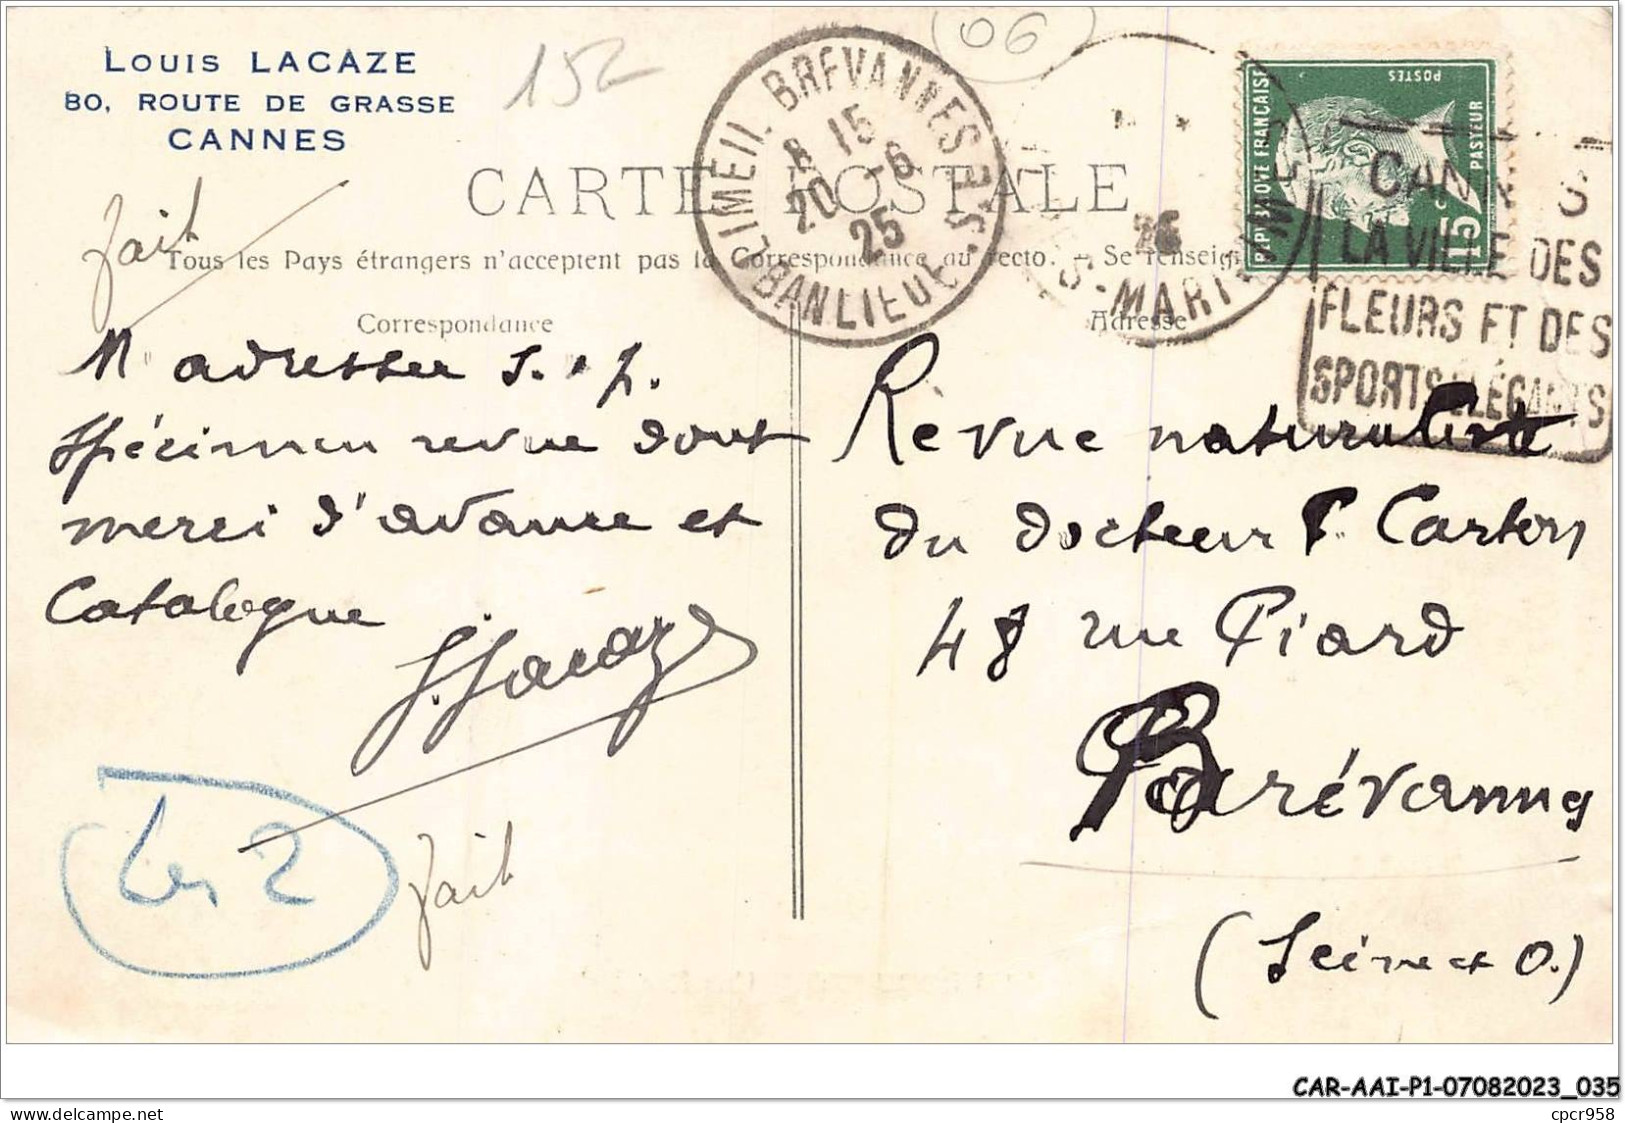 LOUIS LACAZE
80, ROUTE DE GRASSE
CANNES
152
06
LIMEIL BREVANNES
8 15
20 -6
25
BANLIEUE S.S.E
25
MARITIMES
POSTES
REPUBLIQUE FRANÇAISE
PASTEUR
15c
CANNES
LA VILLE DES
FLEURS ET DES
SPORTS ÉLÉGANTS
CARTE POSTALE
fait
Tous les Pays étrangers n'acceptent pas la Correspondance au recto. - Se renseig
Correspondance
Adresse
M'adresser s. v. p.
spécimen revue dont
merci d'avance et
Catalogue
L. Lacaze
Les 2
fait
Revue naturaliste
du docteur P. Carton
48 rue Piard
Brévannes
(Seine et O.)
CAR-AAI-P1-07082023_035
delcampe.net
cpcr958